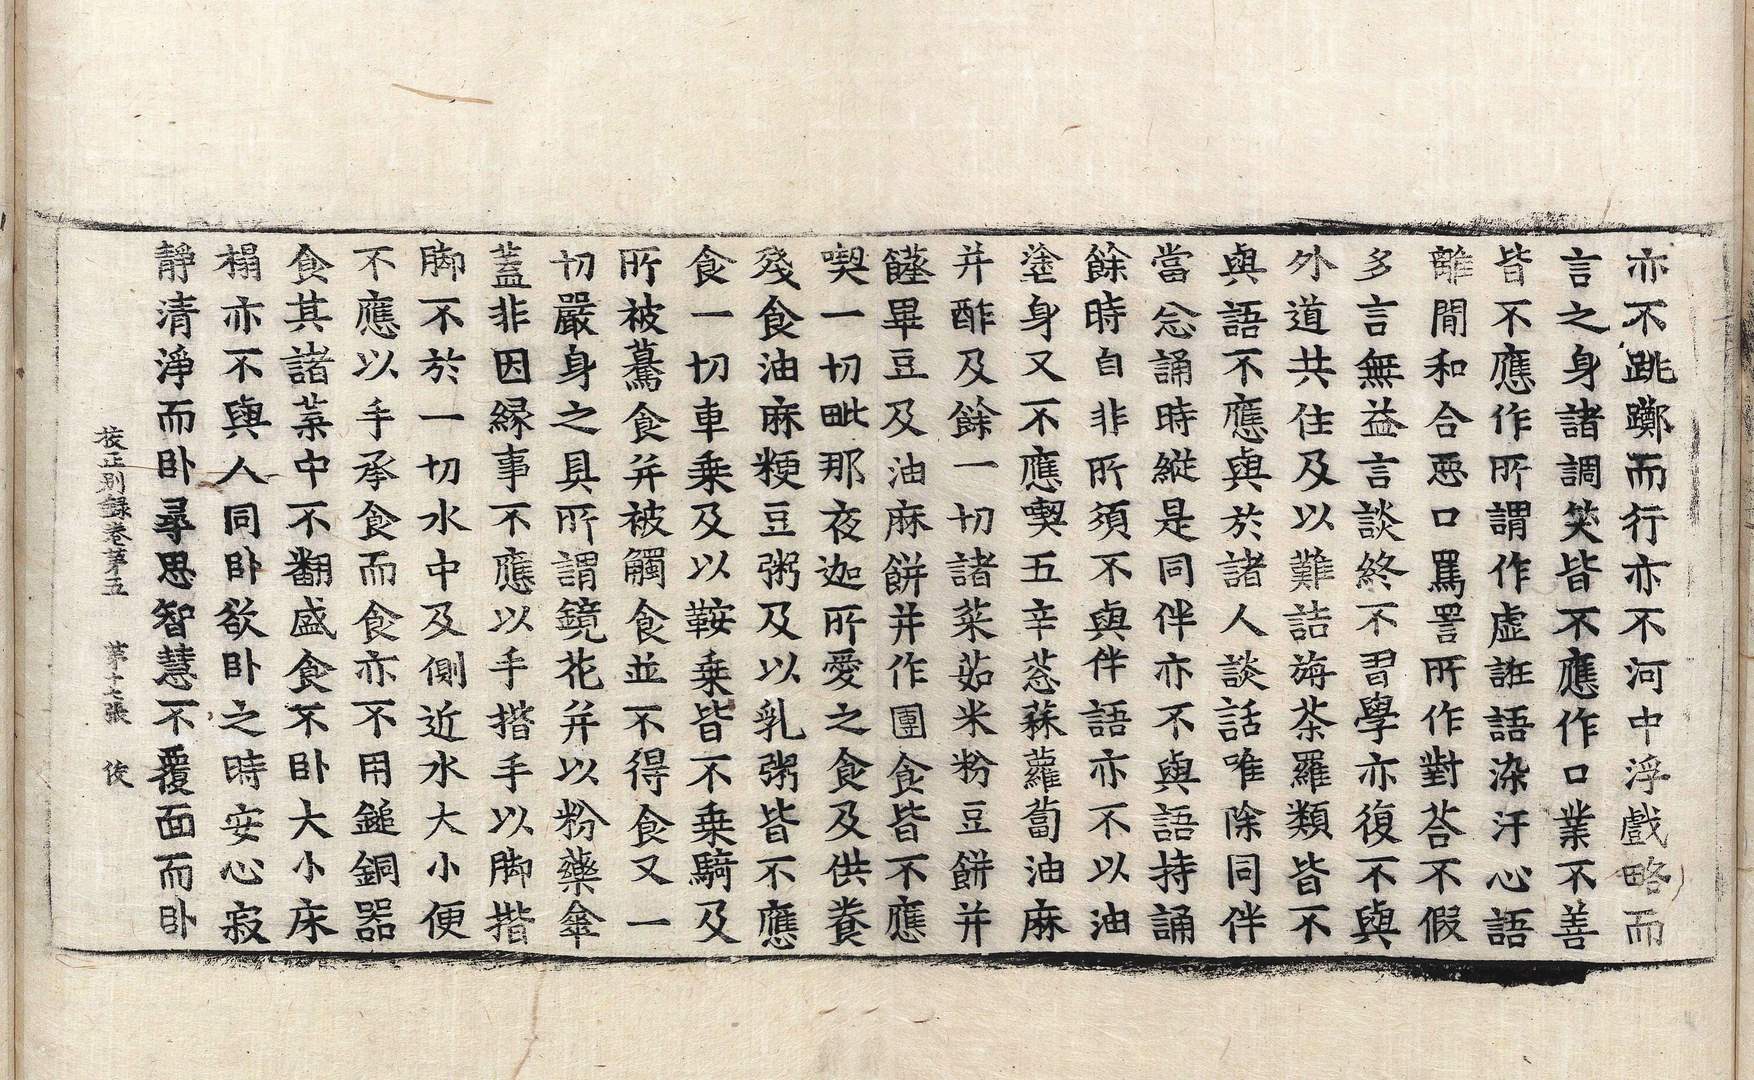 亦不跳躑而行亦不河中浮戲略而
言之身諸調笑皆不應作口業不善
皆不應作所謂作虛誑語染汙心語
離間和合惡口罵詈所作對荅不假
多言無益言談終不習學亦復不與
外道共住及以難詰旃茶羅類皆不
與語不應與於諸人談話唯除同伴
當念誦時縱是同伴亦不與語持誦
餘時自非所須不與伴語亦不以油
塗身又不應喫五辛葱蒜蘿蔔油麻
并酢及餘一切諸菜茹米粉豆餅并
饐畢豆及油麻餅并作團食皆不應
喫一切毗那夜迦所愛之食及供養
殘食油麻粳豆粥及以乳粥皆不應
食一切車乘及以鞍乘皆不乘騎及
所被驀食并被觸食並不得食又一
切嚴身之具所謂鏡花并以粉藥傘
蓋非因緣事不應以手揩手以脚揩
脚不於一切水中及側近水大小便
不應以手承食而食亦不用鎚銅器
食其諸葉中不翻盛食不卧大小床
榻亦不與人同卧欲卧之時安心寂
靜清淨而卧尋思智慧不覆面而卧
校正別錄卷苐五 苐十七張 俊